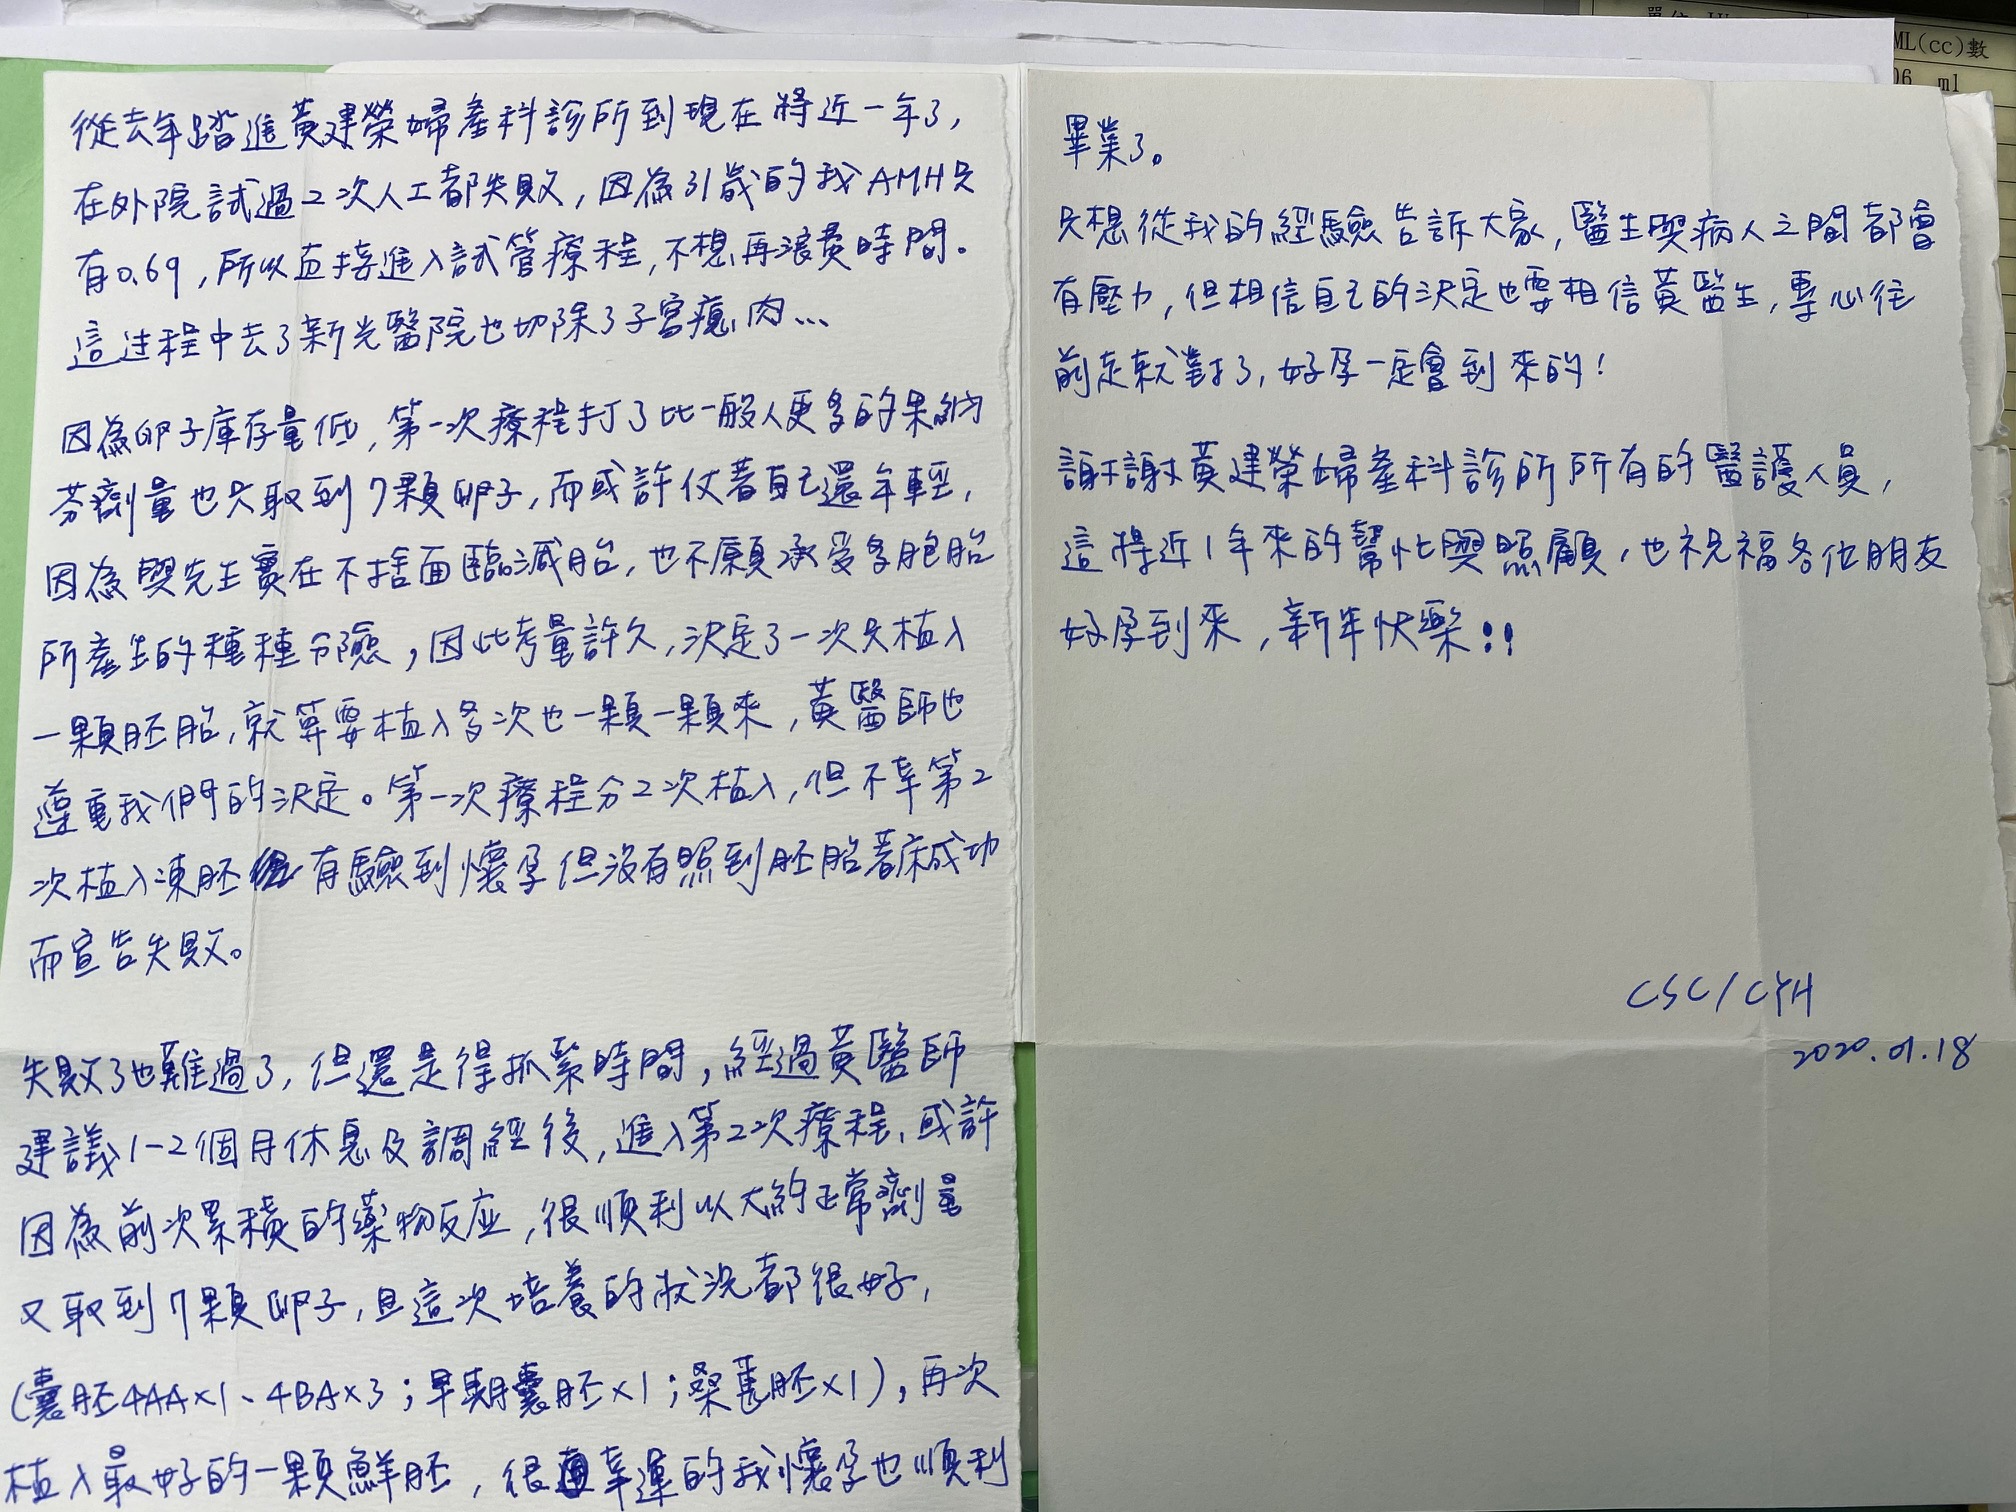 從去年踏進黃建榮婦產科診所到現在將近一年了,
在外院試過2次人工都失敗,因為31歲的我AMH只
有0.69,所以直接進入試管療程,不想再浪費時間。
這过程中去了新光醫院也切除了子宮瘜肉...
因為卵子庫存量低,第一次療程打了比一般人更多的果納
芬劑量也只取到7顆卵子,而或許仗著自己還年輕,
因為與先生實在不捨面臨減胎,也不願承受多胞胎
所產生的種種分險,因此考量許久,決定了一次只植入
一顆胚胎,就算要植入多次也一顆一顆來,黃醫師也
尊重我們的決定。第一次療程分2次植入,但不幸第2
次植入凍胚 有驗到懷孕但沒有照到胚胎著床成功
而宣告失敗。
失敗了也難過了,但還是得抓緊時間,經過黃醫師
建議1-2個月休息及調經後,進入第2次療程,或許
因為前次累積的藥物反应,很順利以大約正常劑量
又取到7顆卵子,且這次培養的狀況都很好,
(囊胚4AA×1、4BA×3;早期囊胚×1;桑葚胚×1),再次
植入最好的一顆鮮胚,很幸運的我懷孕也順利
畢業了。
只想從我的經驗告訴大家,醫生與病人之間都會
有壓力,但相信自己的決定也要相信黃醫生,專心往
前走就對了,好孕一定會到來的!
謝謝黃建榮婦產科診所所有的醫護人員,
這將近1年來的幫忙與照顧,也祝福各位朋友
好孕到來,新年快樂!!
CSC/CYH
2020.01.18
ML(cc)數
06 ml